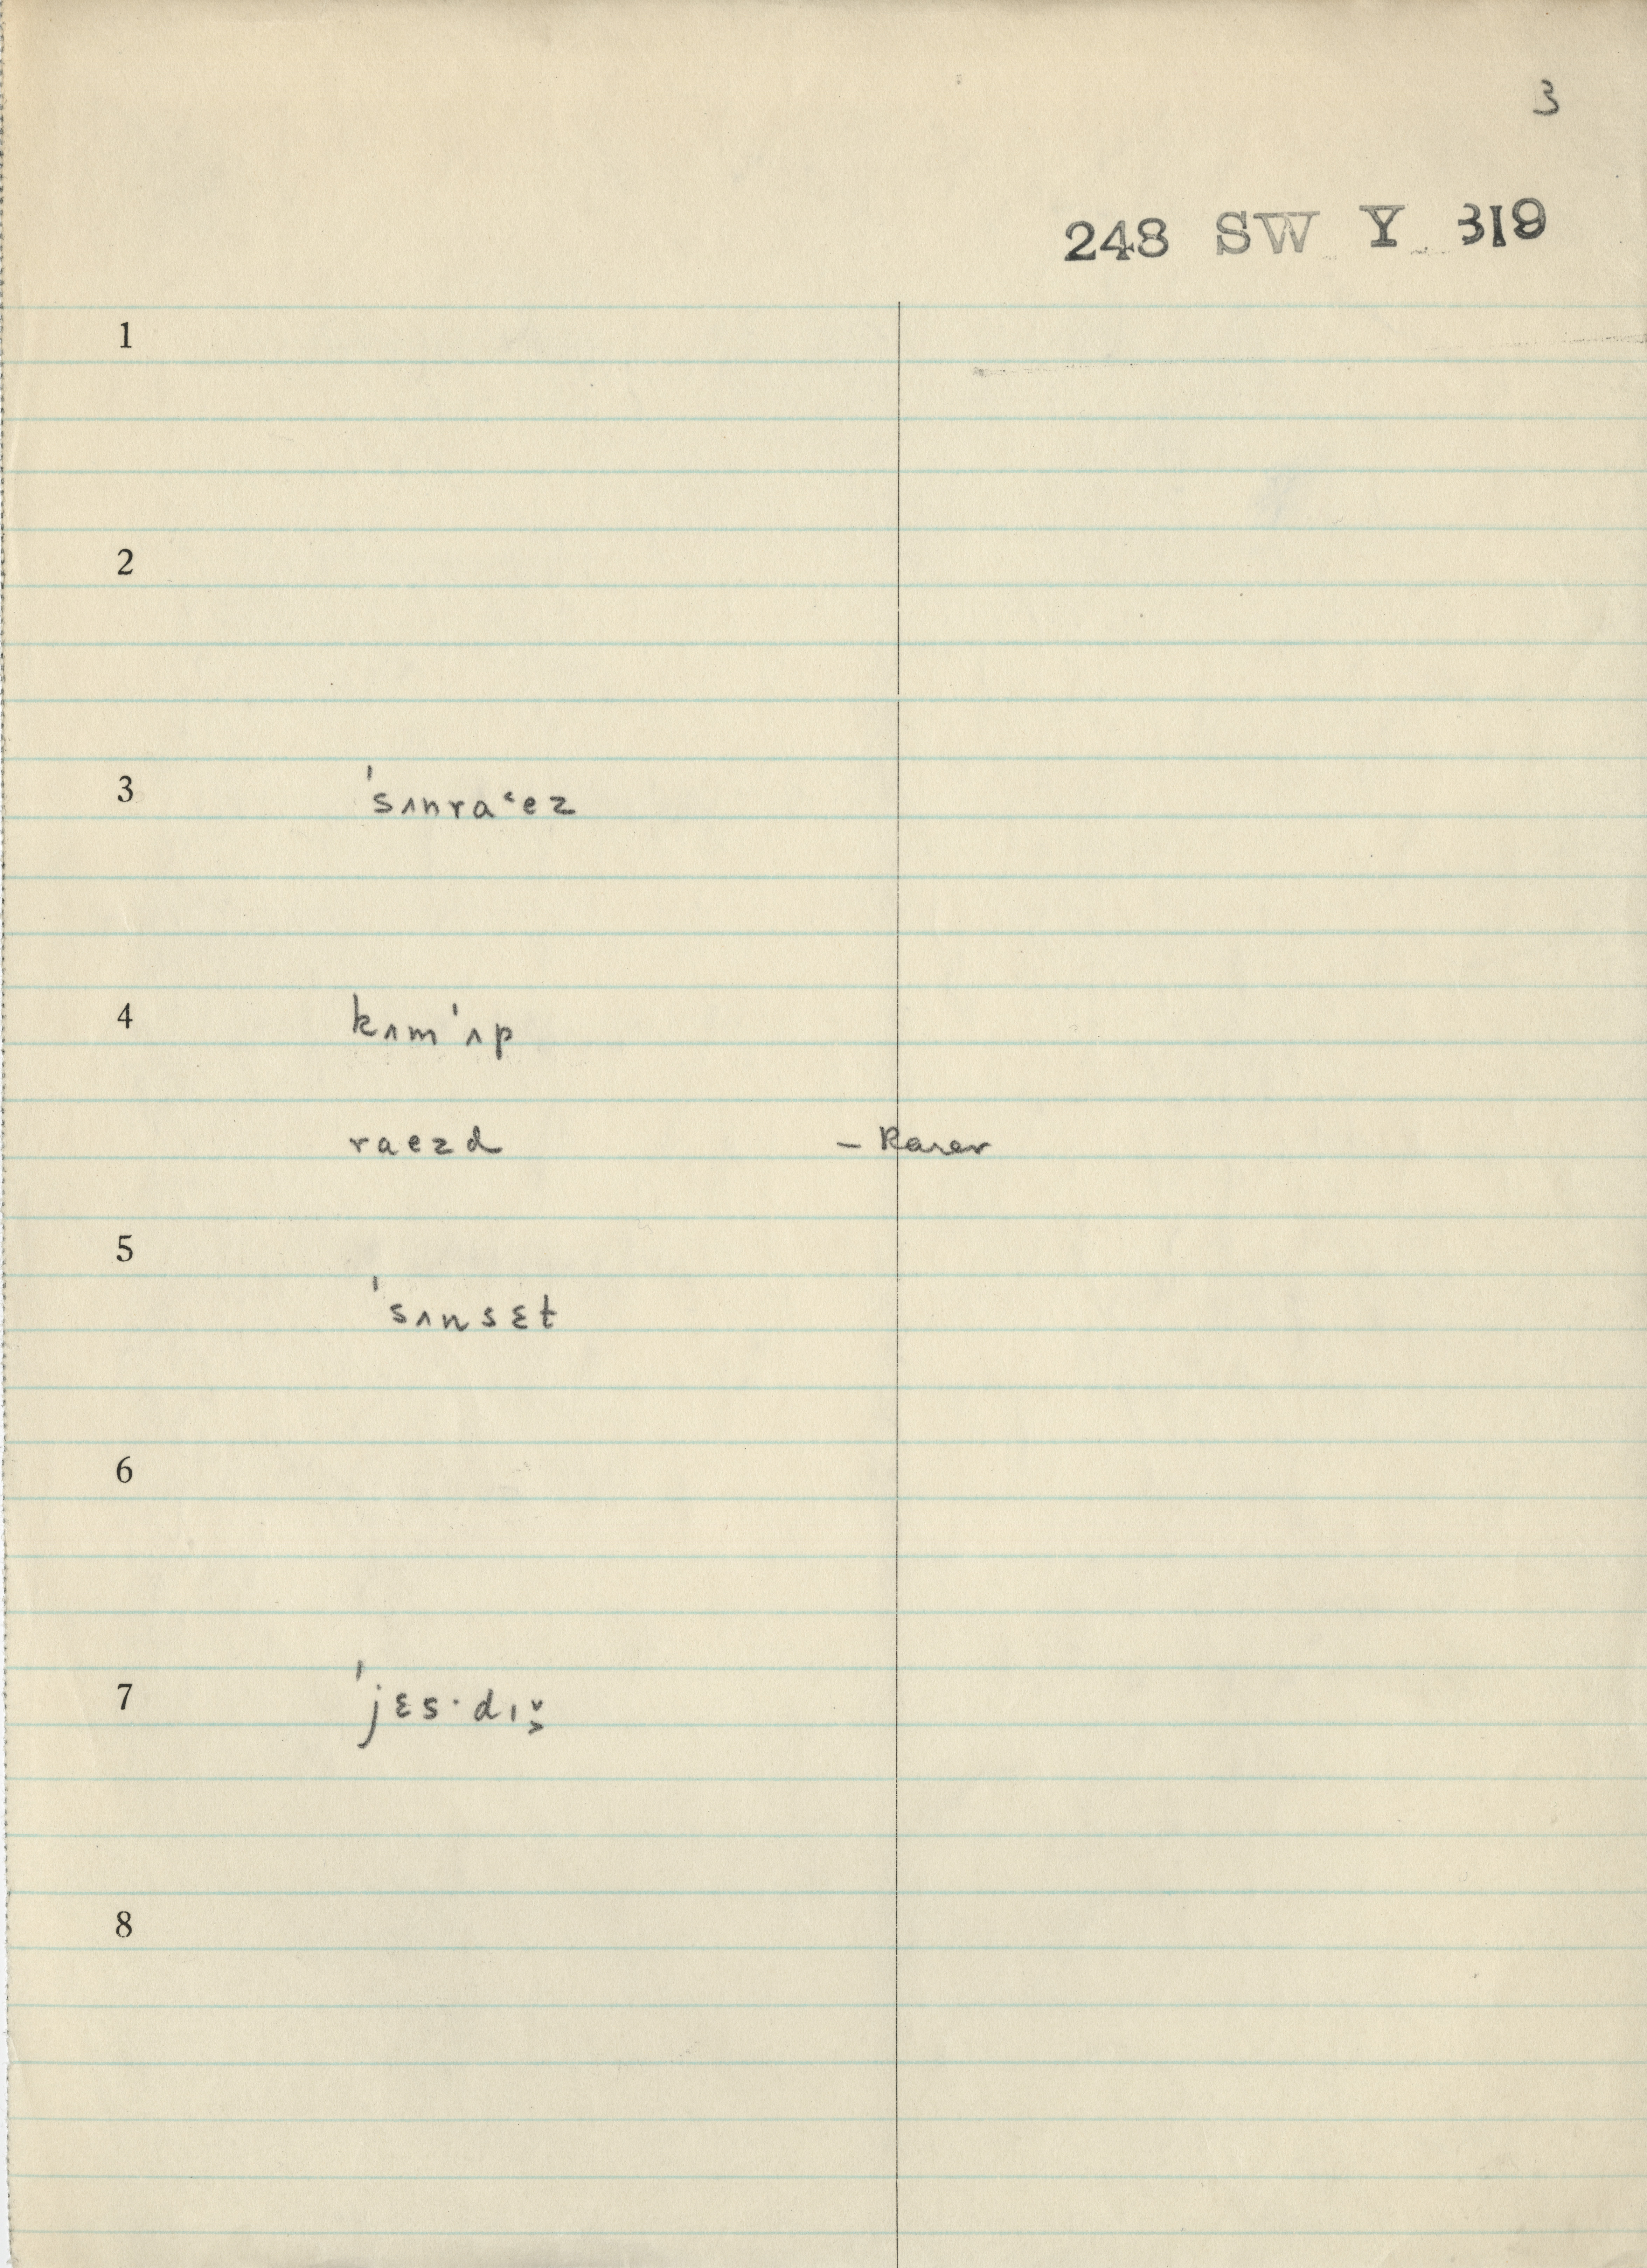 3
248 SW Y 319
1
2
3 ˈsʌnraˑez
4 kʌmˈʌp
raezd – Rarer
5 ˈsʌnsɛt
6
7 ˈjɛs·dɪ
8